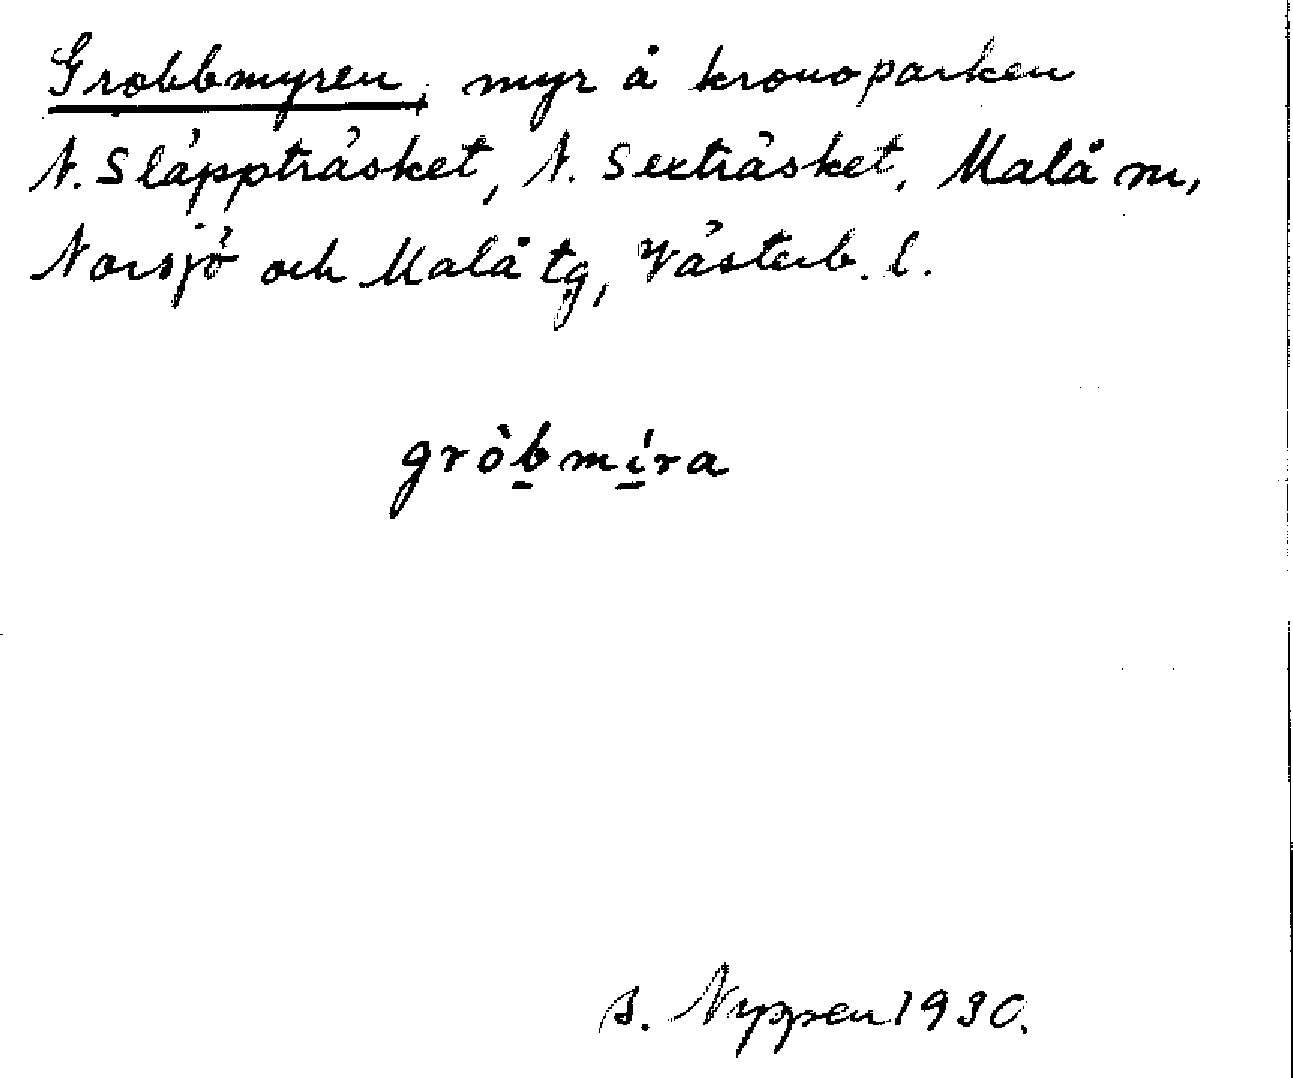 Grobbmyren, myr å kronoparken
N. Släppträsket, N. Sexträsket, Malå m,
Norsjö och Malå tg, Västerb. l.
gròbmíra
A. Nyppen 1930.